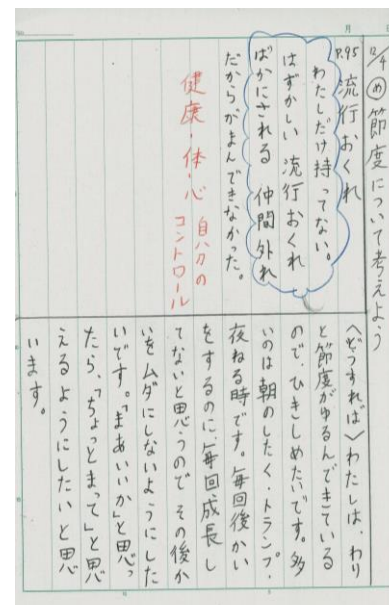 月
12/4 め 節度について考えよう
P.95 流行おくれ
わたしだけ持ってない。
はずかしい 流行おくれ
ばかにされる 仲間外れ
だからがまんできなかった。
健康・体・心 自分の
コントロール
〈どうすれば〉わたしは、わり
と節度がゆるんできている
ので、ひきしめたいです。多
いのは朝のしたく、トランプ、
夜ねる時です。毎回後かい
をするのに、毎回成長し
てないと思うので その後か
いをムダにしないようにした
いです。「まあいいか」と思っ
たら、「ちょっとまって」と思
えるようにしたいと思
います。